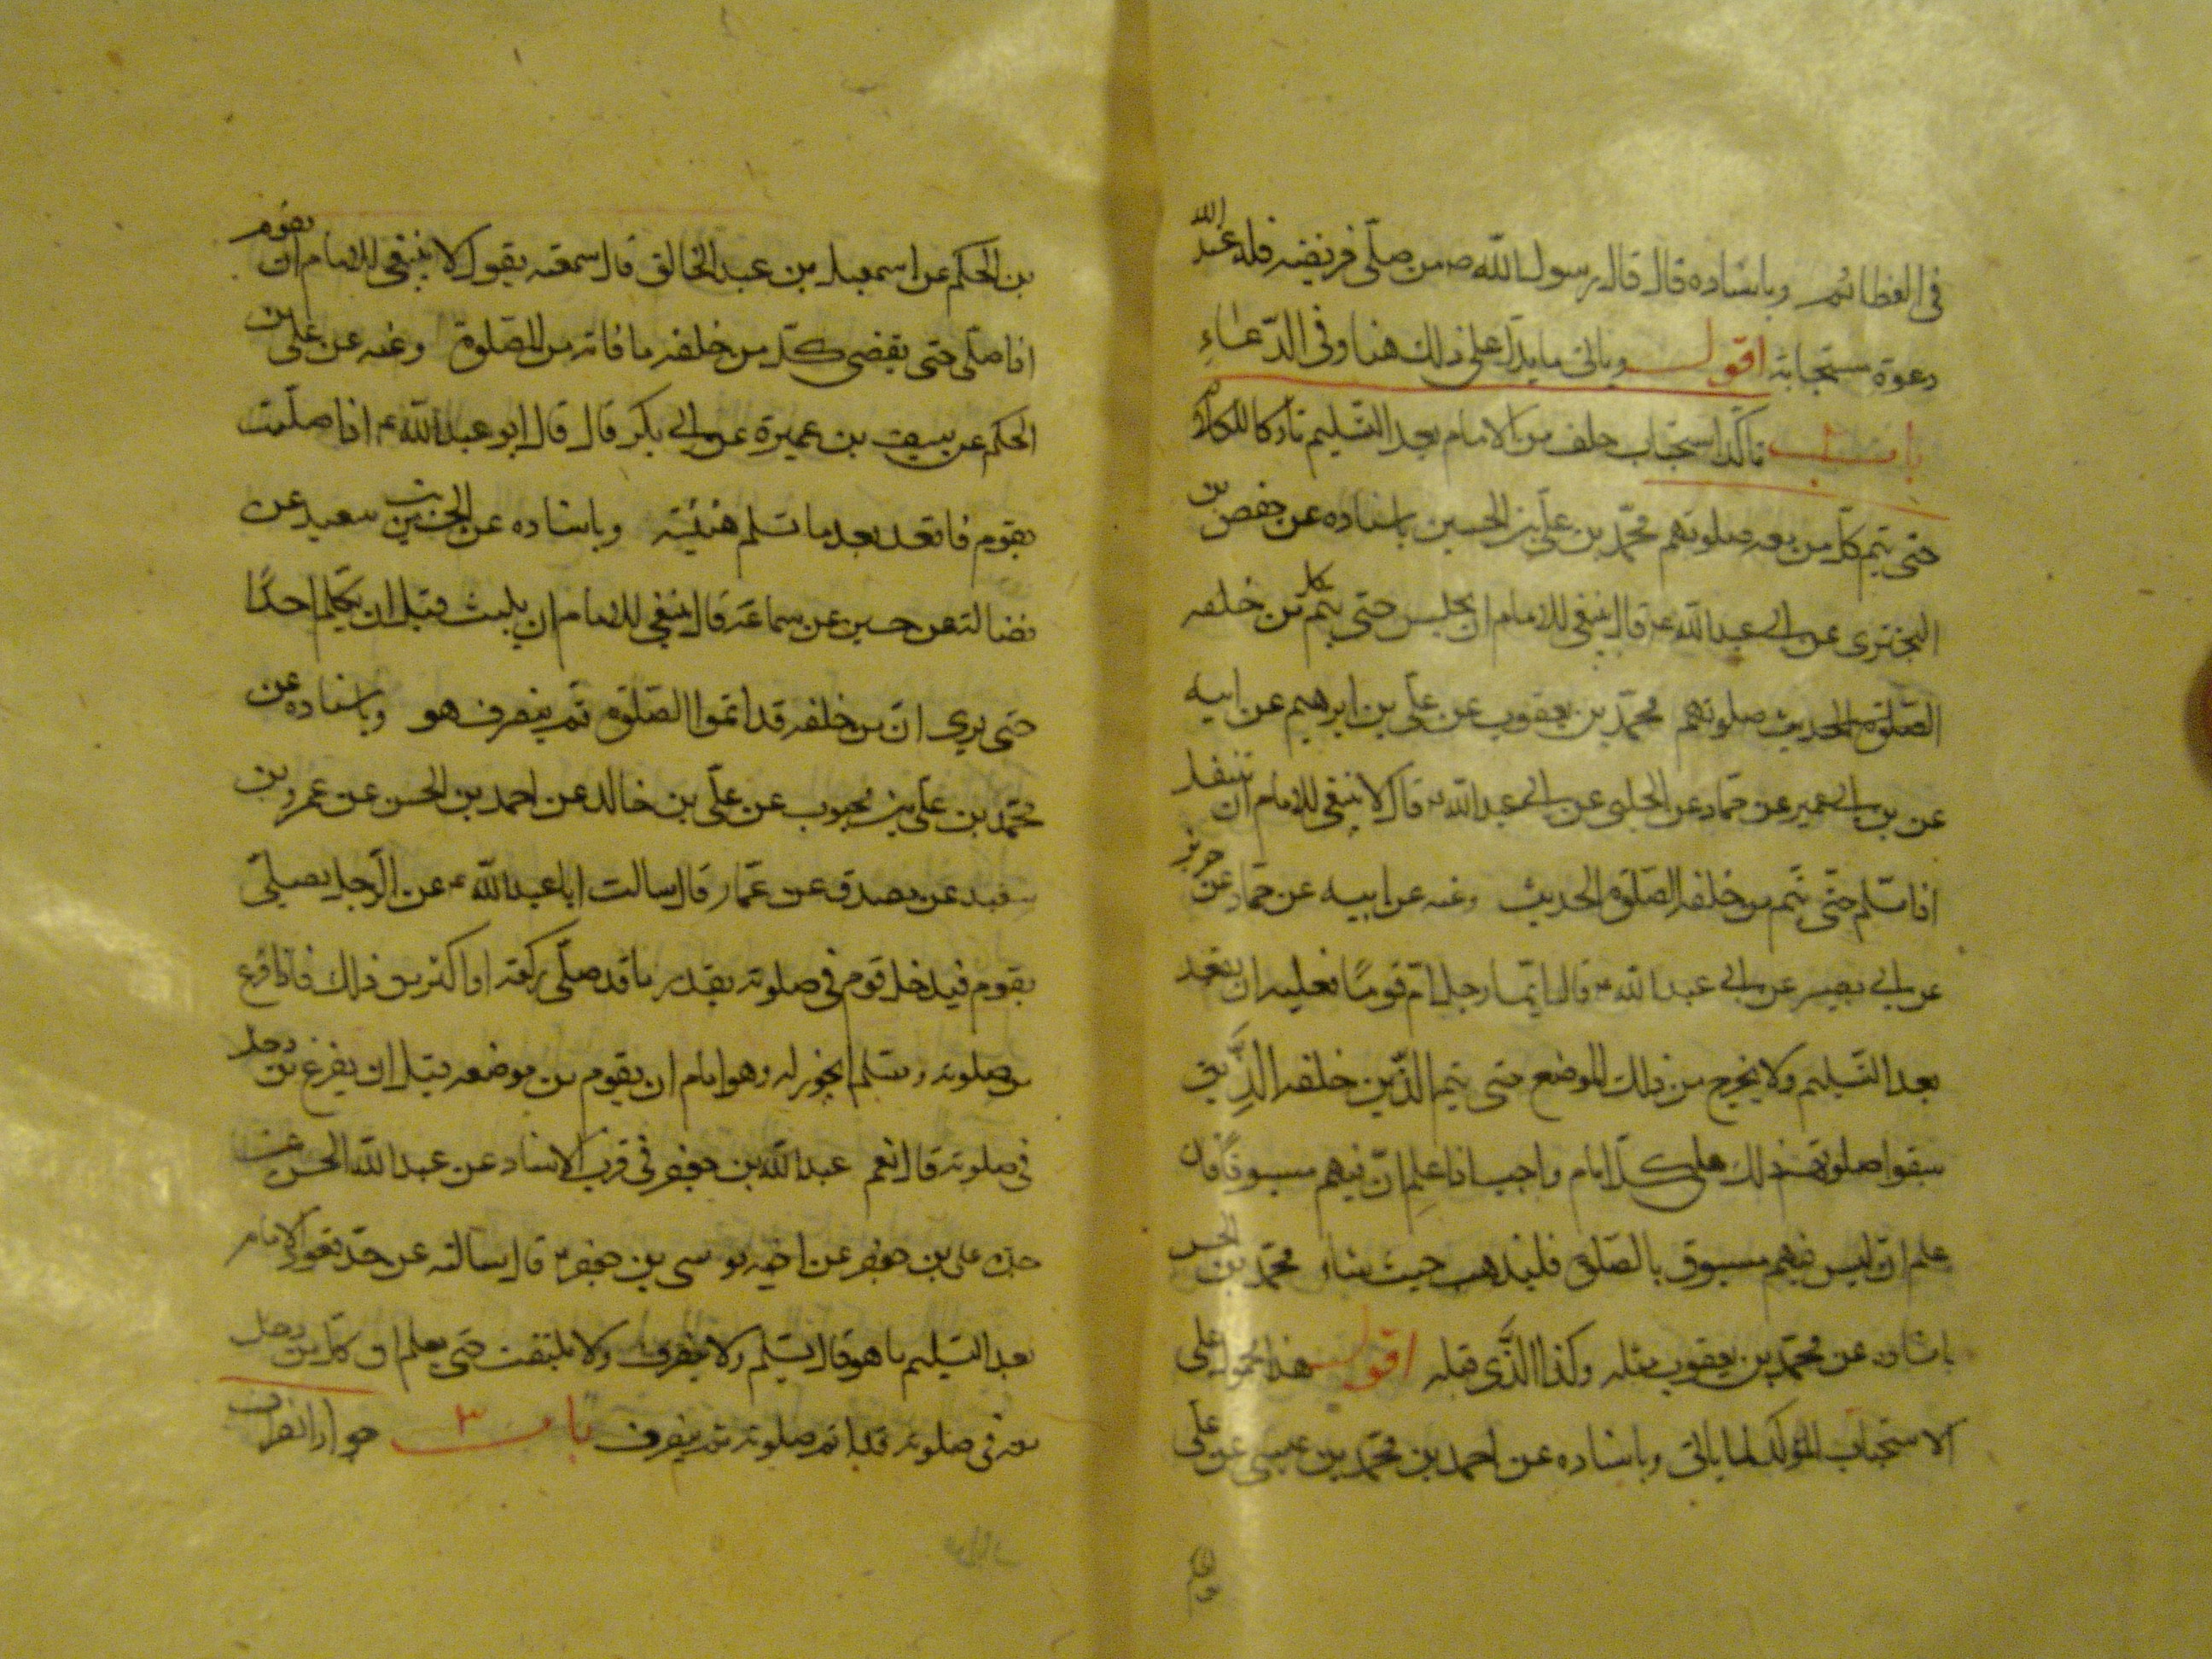 فى الفطائم وباسناده قال قال رسول الله ص من صلى فريضة فله عند الله
دعوة مستجابة اقول وياتى ما يدل على ذلك هنا وفى الدعاء
باب تاكد استحباب جلوس الامام بعد التسليم تاركا للكلام
حتى يتم كل من معه صلوتهم محمد بن على بن الحسين باسناده عن حفص بن
البخترى عن ابى عبد الله ع قال ينبغى للامام ان يجلس حتى يتم كل من خلفه
صلوتهم محمد بن يعقوب عن على بن ابرهيم عن ابيه
عن بن ابى عمير عن حماد عن الحلبى عن ابى عبد الله ع قال لا ينبغى للامام ان ينتفل
اذا سلم حتى يتم من خلفه الصلوة الحديث وعنه عن ابيه عن حماد عن حريز
عن ابى بصير عن ابى عبد الله ع قال ايما رجل ام قوما فعليه ان يقعد
بعد التسليم ولا يخرج من ذلك الموضع حتى يتم الذين خلفه الذين
سبقوا صلوتهم ذلك على كل امام واجب اذا علم ان فيهم مسبوقا فان
علم ان ليس فيهم مسبوق بالصلوة فليذهب حيث شاء محمد بن الحسن
باسناده عن محمد بن يعقوب مثله وكذا الذى قبله اقول هذا محمول على
الاستحباب المؤكد لما ياتى وباسناده عن احمد بن محمد بن عيسى عن على
بن الحكم عن اسمعيل بن عبد الخالق قال سمعته يقول لا ينبغى للامام ان يقوم
اذا صلى حتى يقضى كل من خلفه ما فاته من الصلوة وعنه عن على بن
الحكم عن سيف بن عميرة عن ابى بكر قال قال ابو عبد الله ع اذا صليت
بقوم فاقعد بعد ما تسلم هنيئة وباسناده عن الحسين بن سعيد عن
فضالة عن حسين عن سماعة قال ينبغى للامام ان يلبث قبل ان يكلم احدا
حتى يرى ان من خلفه قد اتموا الصلوة ثم ينصرف هو وباسناده عن
محمد بن على بن محبوب عن على بن خالد عن احمد بن الحسن عن عمرو بن
سعيد عن مصدق عن عمار قال سالت ابا عبد الله ع عن الرجل يصلى
بقوم فيدخل قوم فى صلوته بقدر ما قد صلى ركعة او اكثر من ذلك فاذا فرغ
من صلوته وسلم ايجوز له وهو امام ان يقوم من موضعه قبل ان يفرغ من دخل
فى صلوته قال نعم عبد الله بن جعفر فى قرب الاسناد عن عبد الله الحسن عن
جده على بن جعفر عن اخيه موسى بن جعفر ع قال سالته عن حد قعود الامام
بعد التسليم ما هو قال يسلم ولا ينصرف ولا يلتفت حتى يعلم ان كل من دخل
معه فى صلوته قد اتم صلوته ثم ينصرف باب ٣ جواز انصراف